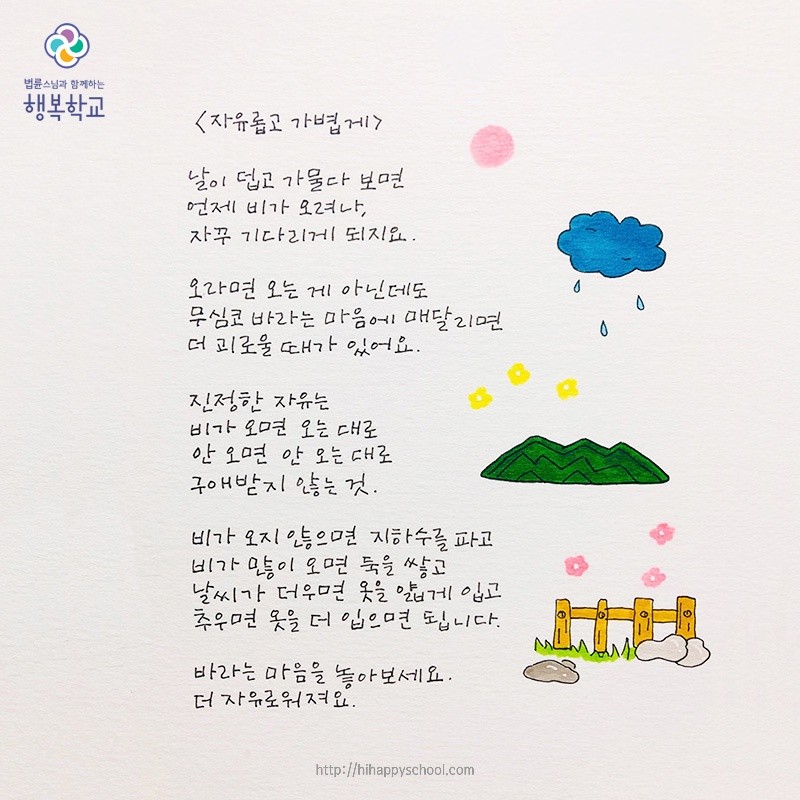 법륜스님과 함께하는
행복학교
<자유롭고 가볍게>
날이 덥고 가물다 보면
언제 비가 오려나,
자꾸 기다리게 되지요.
오라면 오는 게 아닌데도
무심코 바라는 마음에 매달리면
더 괴로울 때가 있어요.
진정한 자유는
비가 오면 오는 대로
안 오면 안 오는 대로
구애받지 않는 것.
비가 오지 않으면 지하수를 파고
비가 많이 오면 둑을 쌓고
날씨가 더우면 옷을 얇게 입고
추우면 옷을 더 입으면 됩니다.
바라는 마음을 놓아보세요.
더 자유로워져요.
http://hihappyschool.com